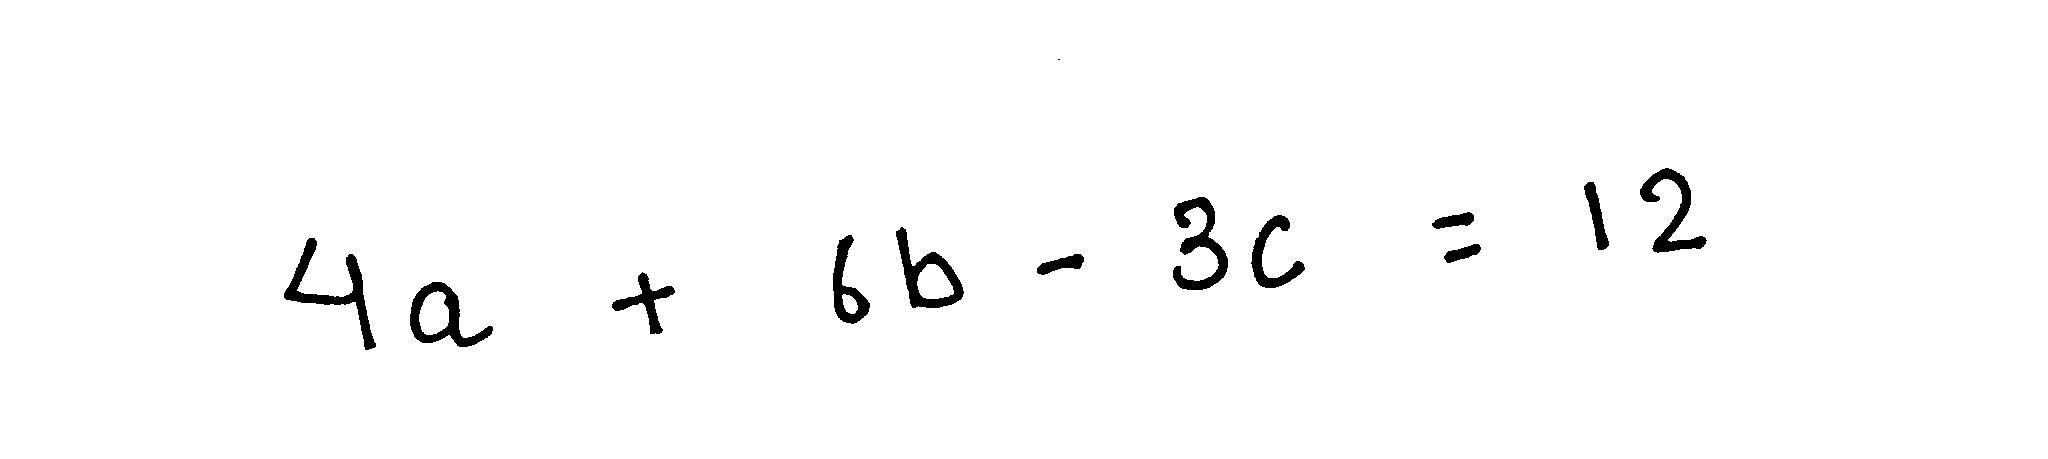 4a + 6b - 3c = 12